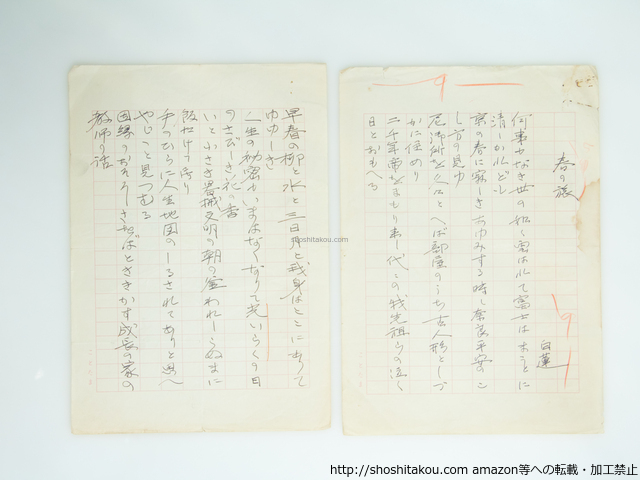 春の旅
白蓮
何事もなき世の如く雲はれて富士はまうとに
清しかれども
京の春に寂しきあゆみする時し奈良平安のこ
し方の見ゆ
尼御所など へば部屋のうち古人形としづ
かに住めり
二千年帝をまもり来し代この我先祖らの泣く
日とおもへる
早春の柳と水と三日月と我身はここにありて
ゆゆしき
一生の秘密もいまはなくなりて老いらくの日
のさびしき花の香
いと小さき器械文明の朝の われしらぬまに
飯たけてをり
手のひらに人生地図のしるされてありと思へ
やしこと見つむる
因縁のおそろしさなどはとききかす成長の家の
教師の話
shoshitakou.com
http://shoshitakou.com amazon等への転載・加工禁止